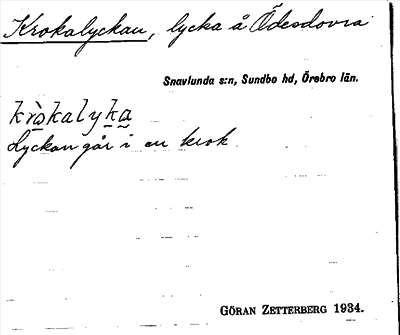 Krokalyckan, lycka å Ödesdovra
Snavlunda s:n, Sundbo hd, Örebro län.
kròkalyka
Lyckan går i en krok
GÖRAN ZETTERBERG 1934.